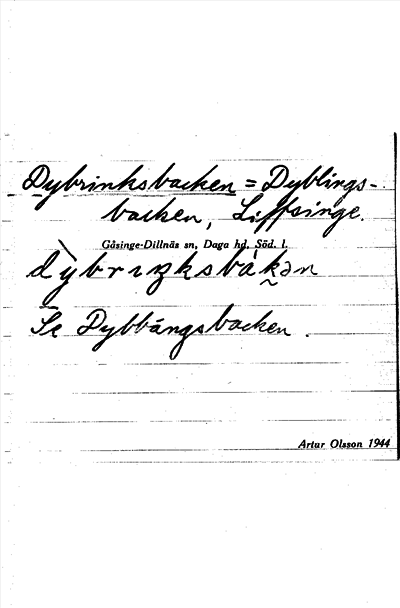 Dybrinksbacken = Dyblings-
backen, Liffsinge.
Gåsinge-Dillnäs sn, Daga hd, Söd. l.
Se Dybbängsbacken.
Artur Olsson 1944